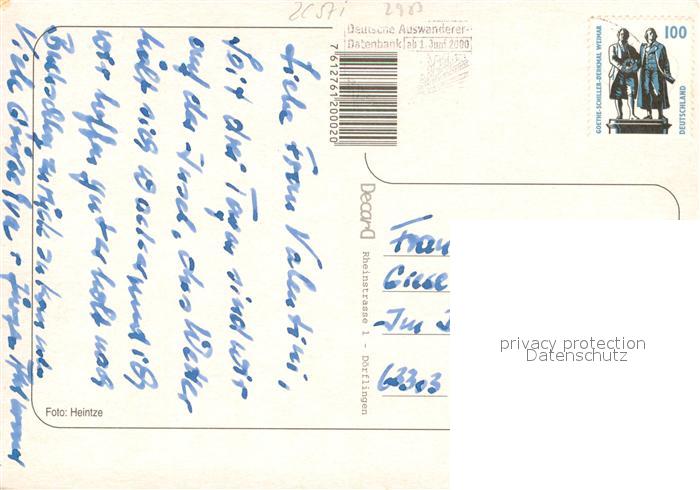 2C57i 2903
Deutsche Auswanderer-
Datenbank ab 1. Juni 2000
7612761200020
GOETHE-SCHILLER-DENKMAL WEIMAR
100
DEUTSCHLAND
Liebe Frau Valentini,
seit drei Tagen sind wir
auf der Insel, das Wetter
hält sich wacker und ich
wir hoffen gut erholt nach
zurück zu kommen
Viele Grüße Ihre
Decard
Rheinstrasse 1 - Dörflingen
Frau
Giese
Im
63303
privacy protection
Datenschutz
Foto: Heintze